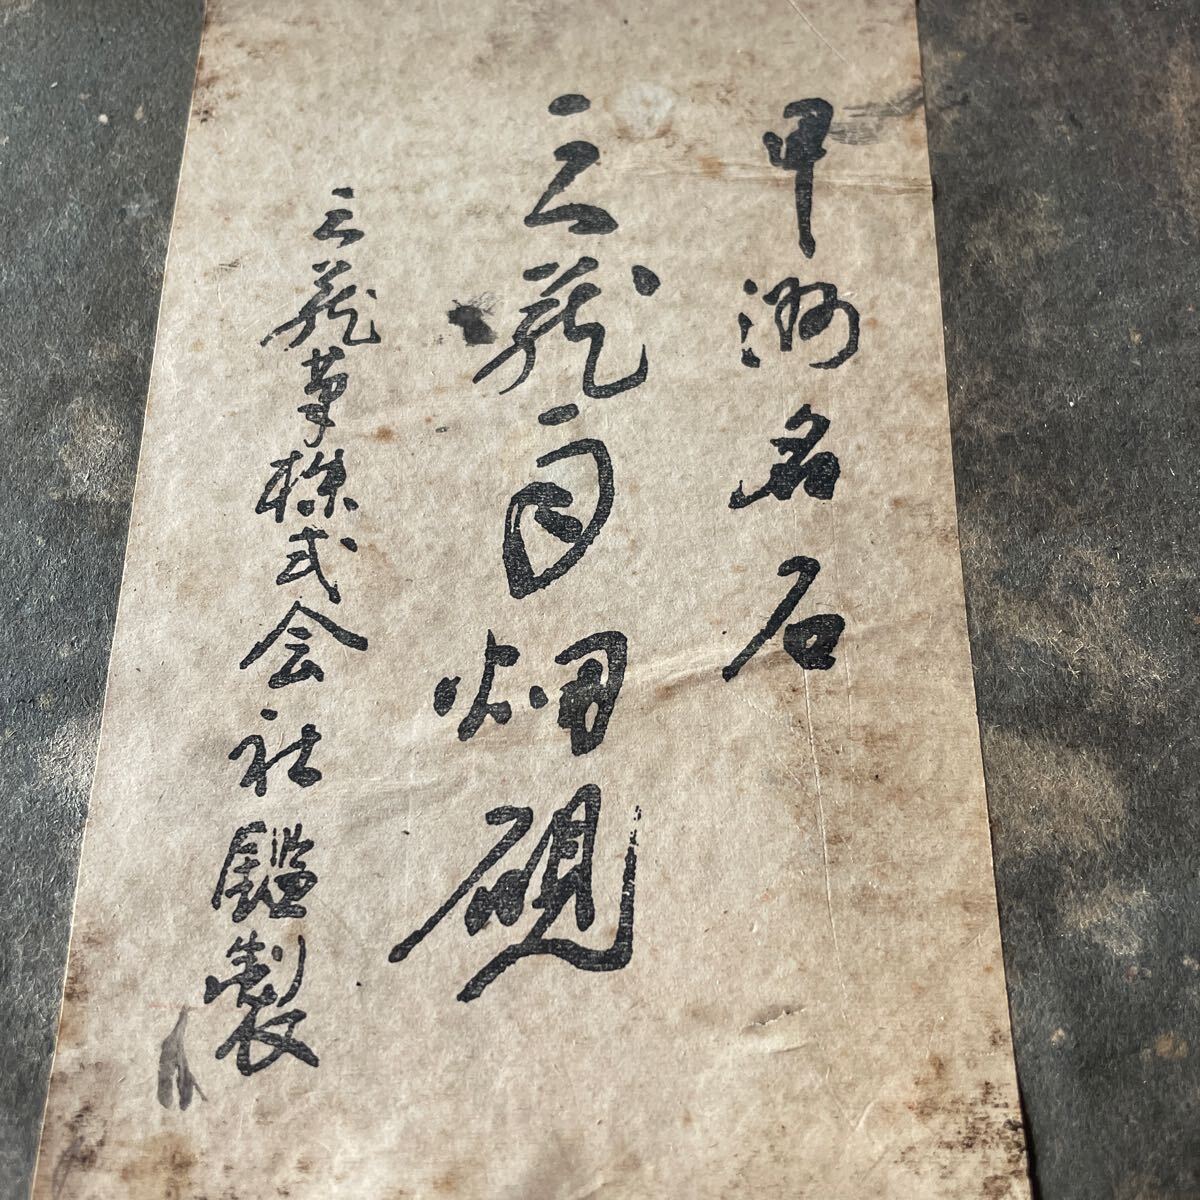 甲洲名石
雨畑硯
筆株式会社鑑製